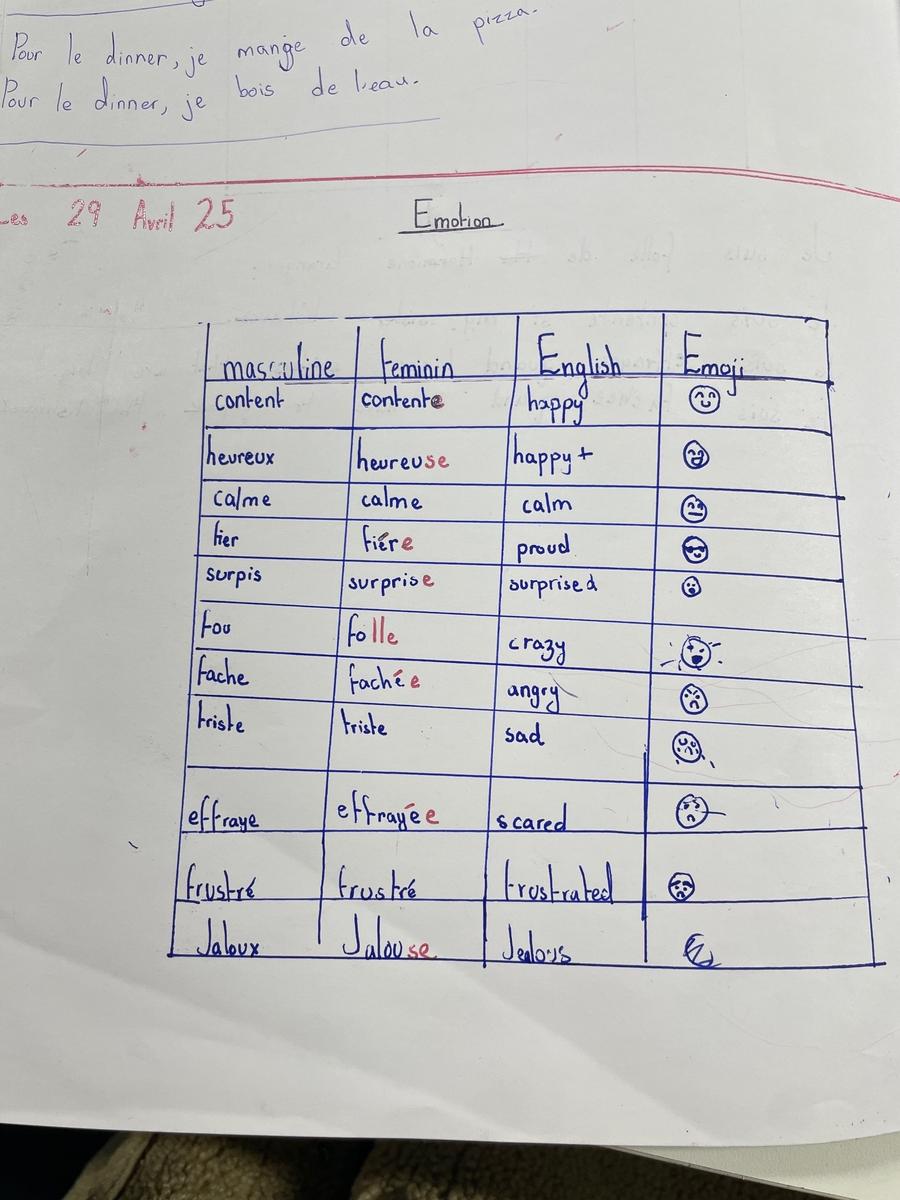 Pour le dinner, je mange de la pizza.
Pour le dinner, je bois de l'eau.
Les 29 Avril 25 Emotion
masculine feminin English Emoji
content contente happy
heureux heureuse happy+
calme calme calm
fier fiére proud
surpis surprise surprised
fou folle crazy
fache fachée angry
triste triste sad
effraye effrayée scared
frustré frustré frustrated
Jaloux Jalouse Jealous